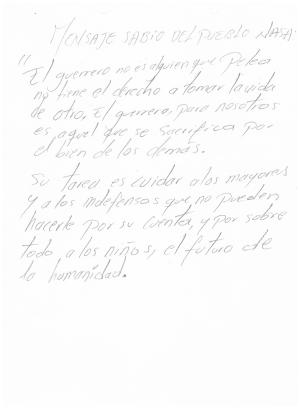 MENSAJE SABIO DEL PUEBLO NASA:
"El guerrero no es alguien que Pelea
no tiene el derecho a tomar la vida
de otro, El guerrero, para nosotros
es aquel que se sacrifica por
el bien de los demás.
Su tarea es cuidar a los mayores
y a los indefensos que no pueden
hacerlo por su cuenta, y por sobre
todo, a los niños, el futuro de
la humanidad.